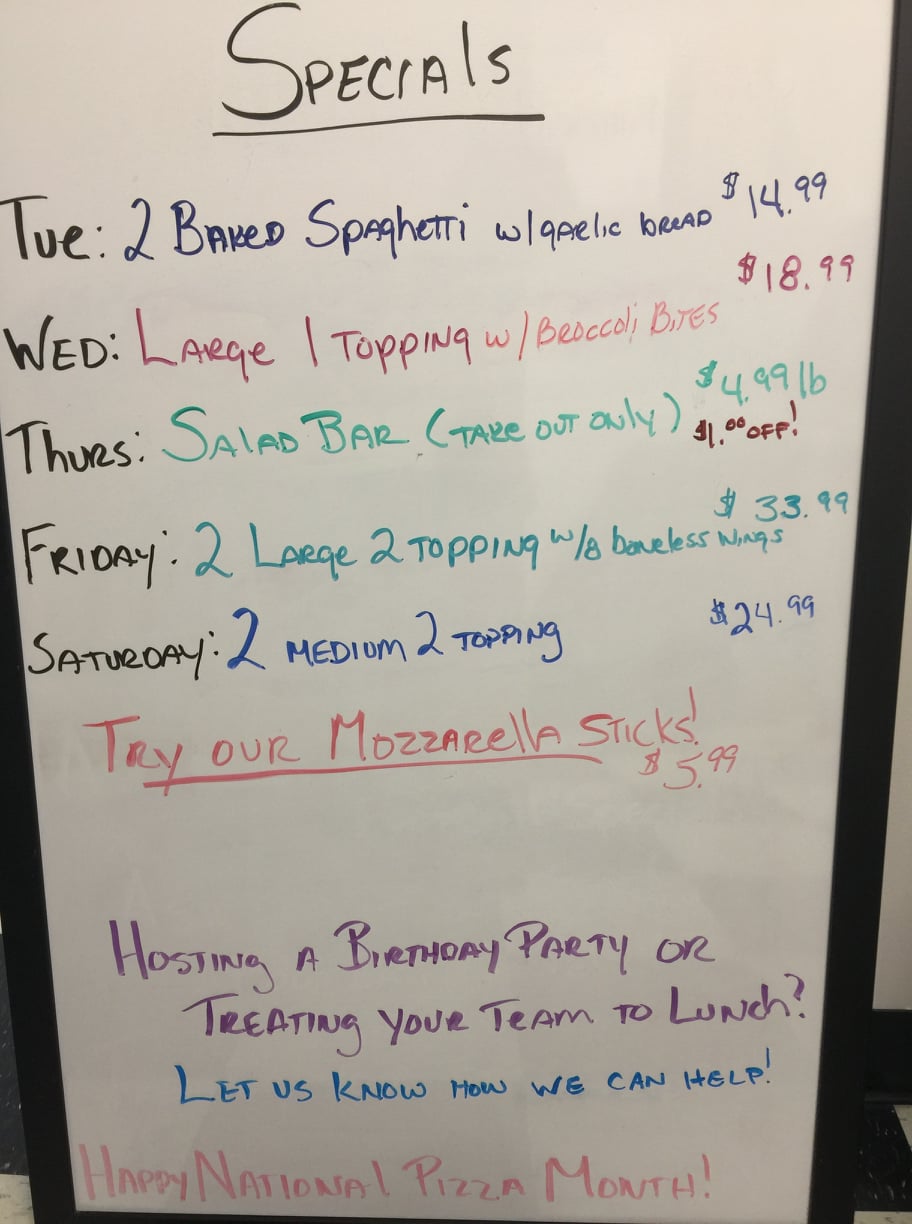 Specials
Tue: 2 Baked Spaghetti w/garlic bread $14.99
$18.99
Wed: Large 1 Topping w/Broccoli Bites
$4.99 lb
Thurs: Salad Bar (take out only) $1.00 off!
$33.99
Friday: 2 Large 2 Topping w/8 boneless wings
Saturday: 2 Medium 2 Topping $24.99
Try our Mozzarella Sticks!
$5.99
Hosting a Birthday Party or
Treating your Team to Lunch?
Let us know how we can help!
Happy National Pizza Month!